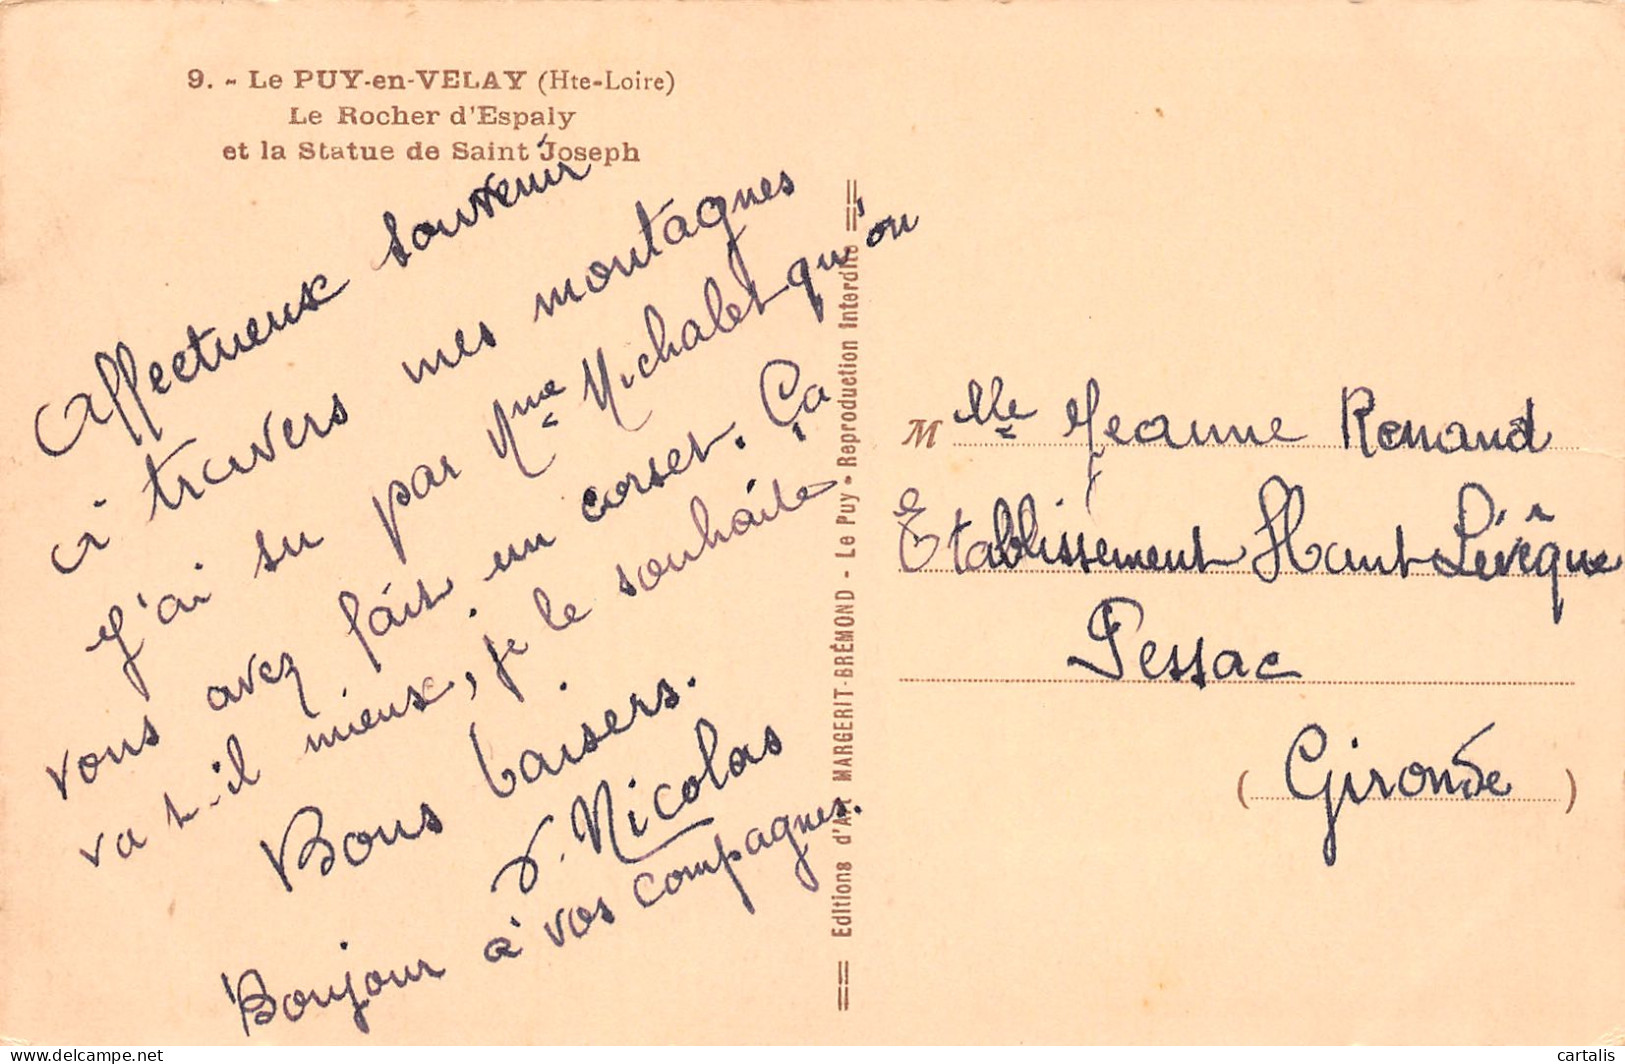 9. - Le PUY-en-VELAY (Hte-Loire)
Le Rocher d'Espaly
et la Statue de Saint Joseph
Affectueux souvenir
à travers mes montagnes
J'ai su par Mme Michalet qu'on
vous avez fait un corset. Ça
va t-il mieux, je le souhaite
Bons baisers.
Nicolas
Bonjour à vos compagnes.
Editions d'Art MARGERIT-BRÉMOND - Le Puy - Reproduction interdite
M lle Jeanne Renaud
Etablissement Haut Lévêque
Pessac
(Gironde)
cartalis